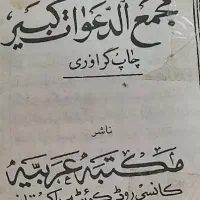 مجمع الدعوات کبیر
چاپ گراوری
ناشر
مکتبہ عربیہ
کانسی روڈ کوئٹہ پاکستان